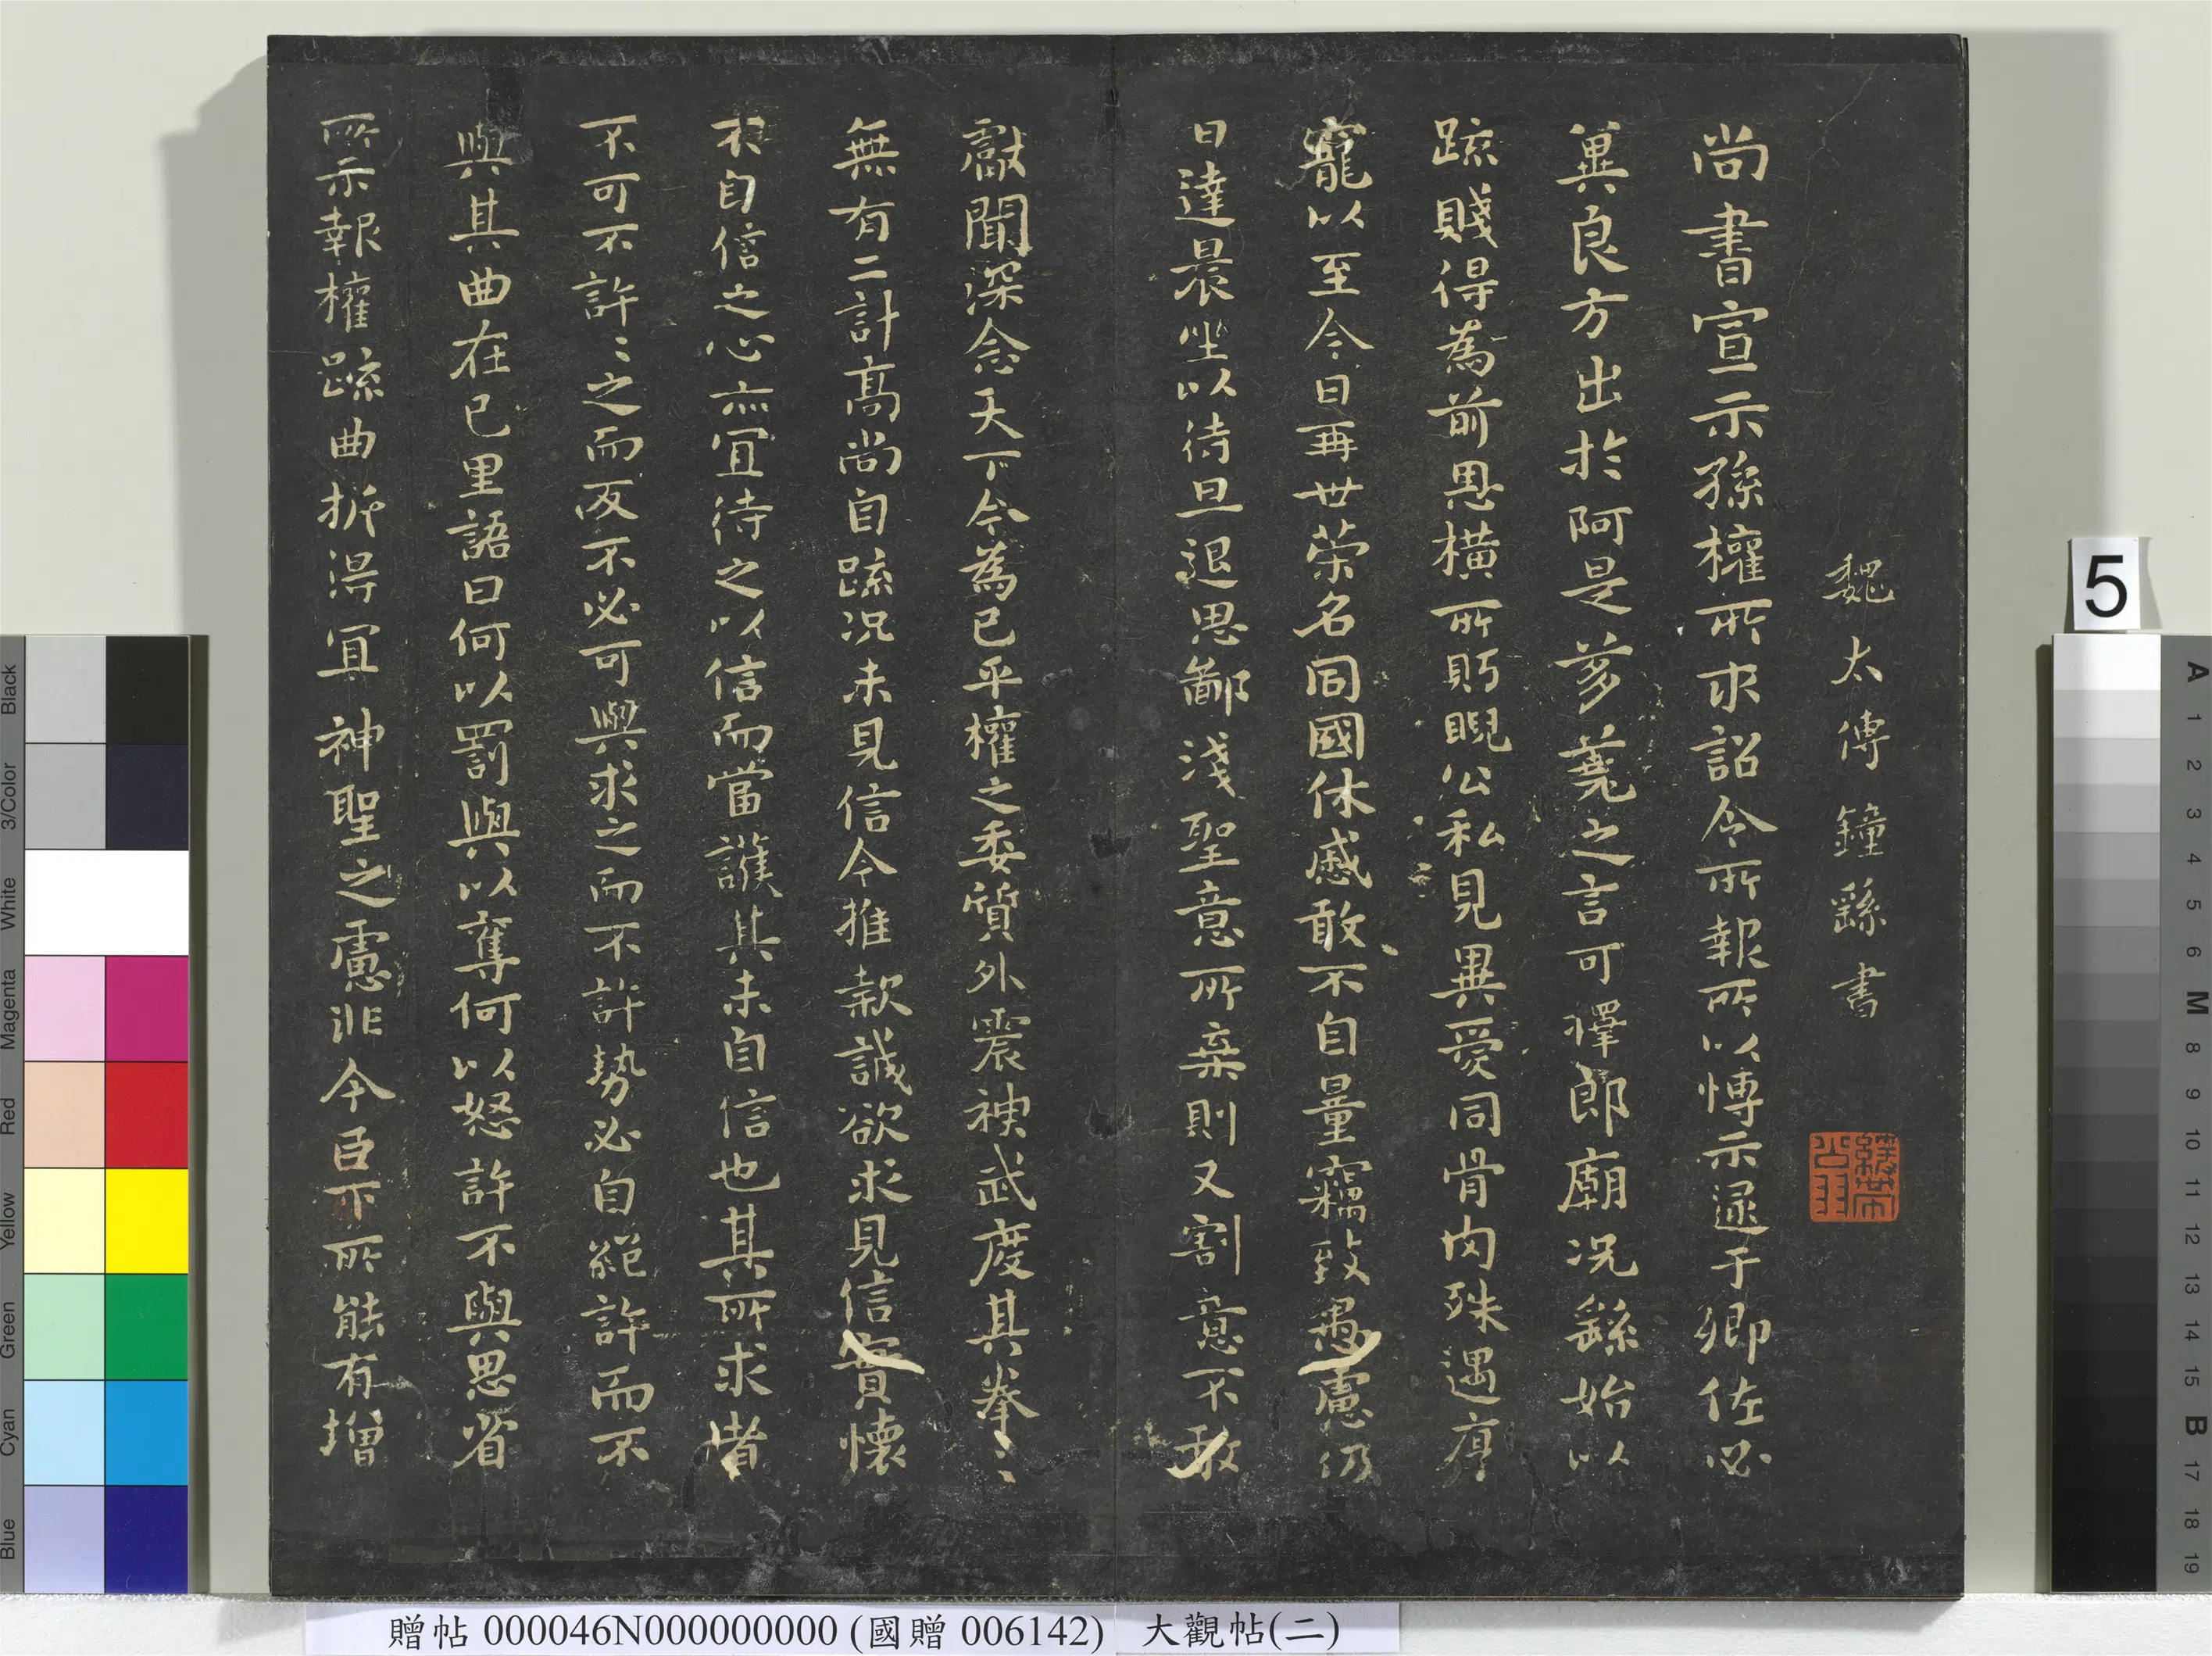 魏太傅鐘繇書
尚書宣示孫權所求詔令所報所以博示逮于卿佐必
冀良方出於阿是芻蕘之言可擇郎廟況繇始以
疏賤得為前恩橫所盻睨公私見異愛同骨肉殊遇厚
寵以至今日再世榮名同國休慼敢不自量竊致愚慮仍
日達晨坐以待旦退思鄙淺聖意所棄則又割意不敢
獻聞深念天下今為已平權之委質外震神武度其拳〻
無有二計高尚自疏況未見信今推款誠欲求見信實懷
不自信之心亦宜待之以信而當護其未自信也其所求者
不可不許〻之而反不必可與求之而不許勢必自絕許而不
與其曲在己里語曰何以罰與以奪何以怒許不與思省
所示報權疏曲折得宜神聖之慮非今臣下所能有增
贈帖 000046N000000000 (國贈 006142) 大觀帖(二)
5
Black
3/Color
White
Magenta
Red
Yellow
Green
Cyan
Blue
A
1
2
3
4
5
6
M
8
9
10
11
12
13
14
15
B
17
18
19